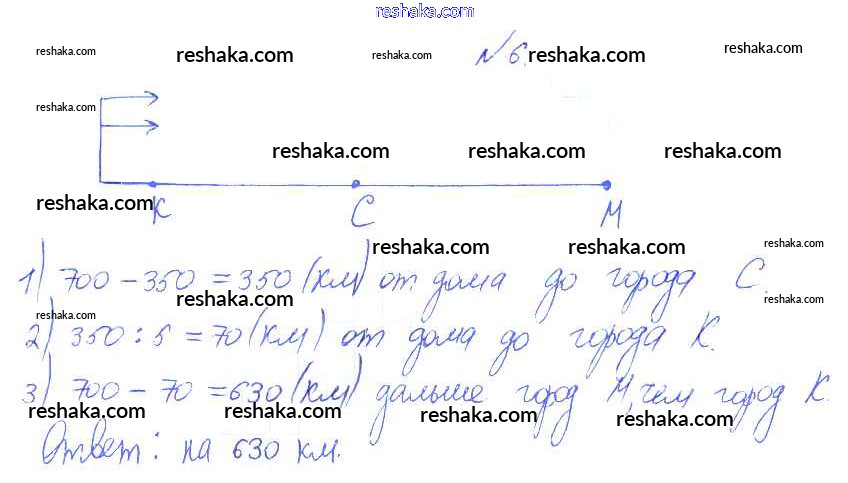 reshaka.com
№ 6.
reshaka.com reshaka.com reshaka.com reshaka.com reshaka.com
reshaka.com
reshaka.com reshaka.com reshaka.com
reshaka.com
К С М
reshaka.com reshaka.com reshaka.com
1) 700 - 350 = 350 (км) от дома до города С.
reshaka.com reshaka.com reshaka.com reshaka.com
2) 350 : 5 = 70 (км) от дома до города К.
reshaka.com reshaka.com reshaka.com
3) 700 - 70 = 630 (км) дальше город М, чем город К.
reshaka.com reshaka.com reshaka.com reshaka.com
Ответ: на 630 км.